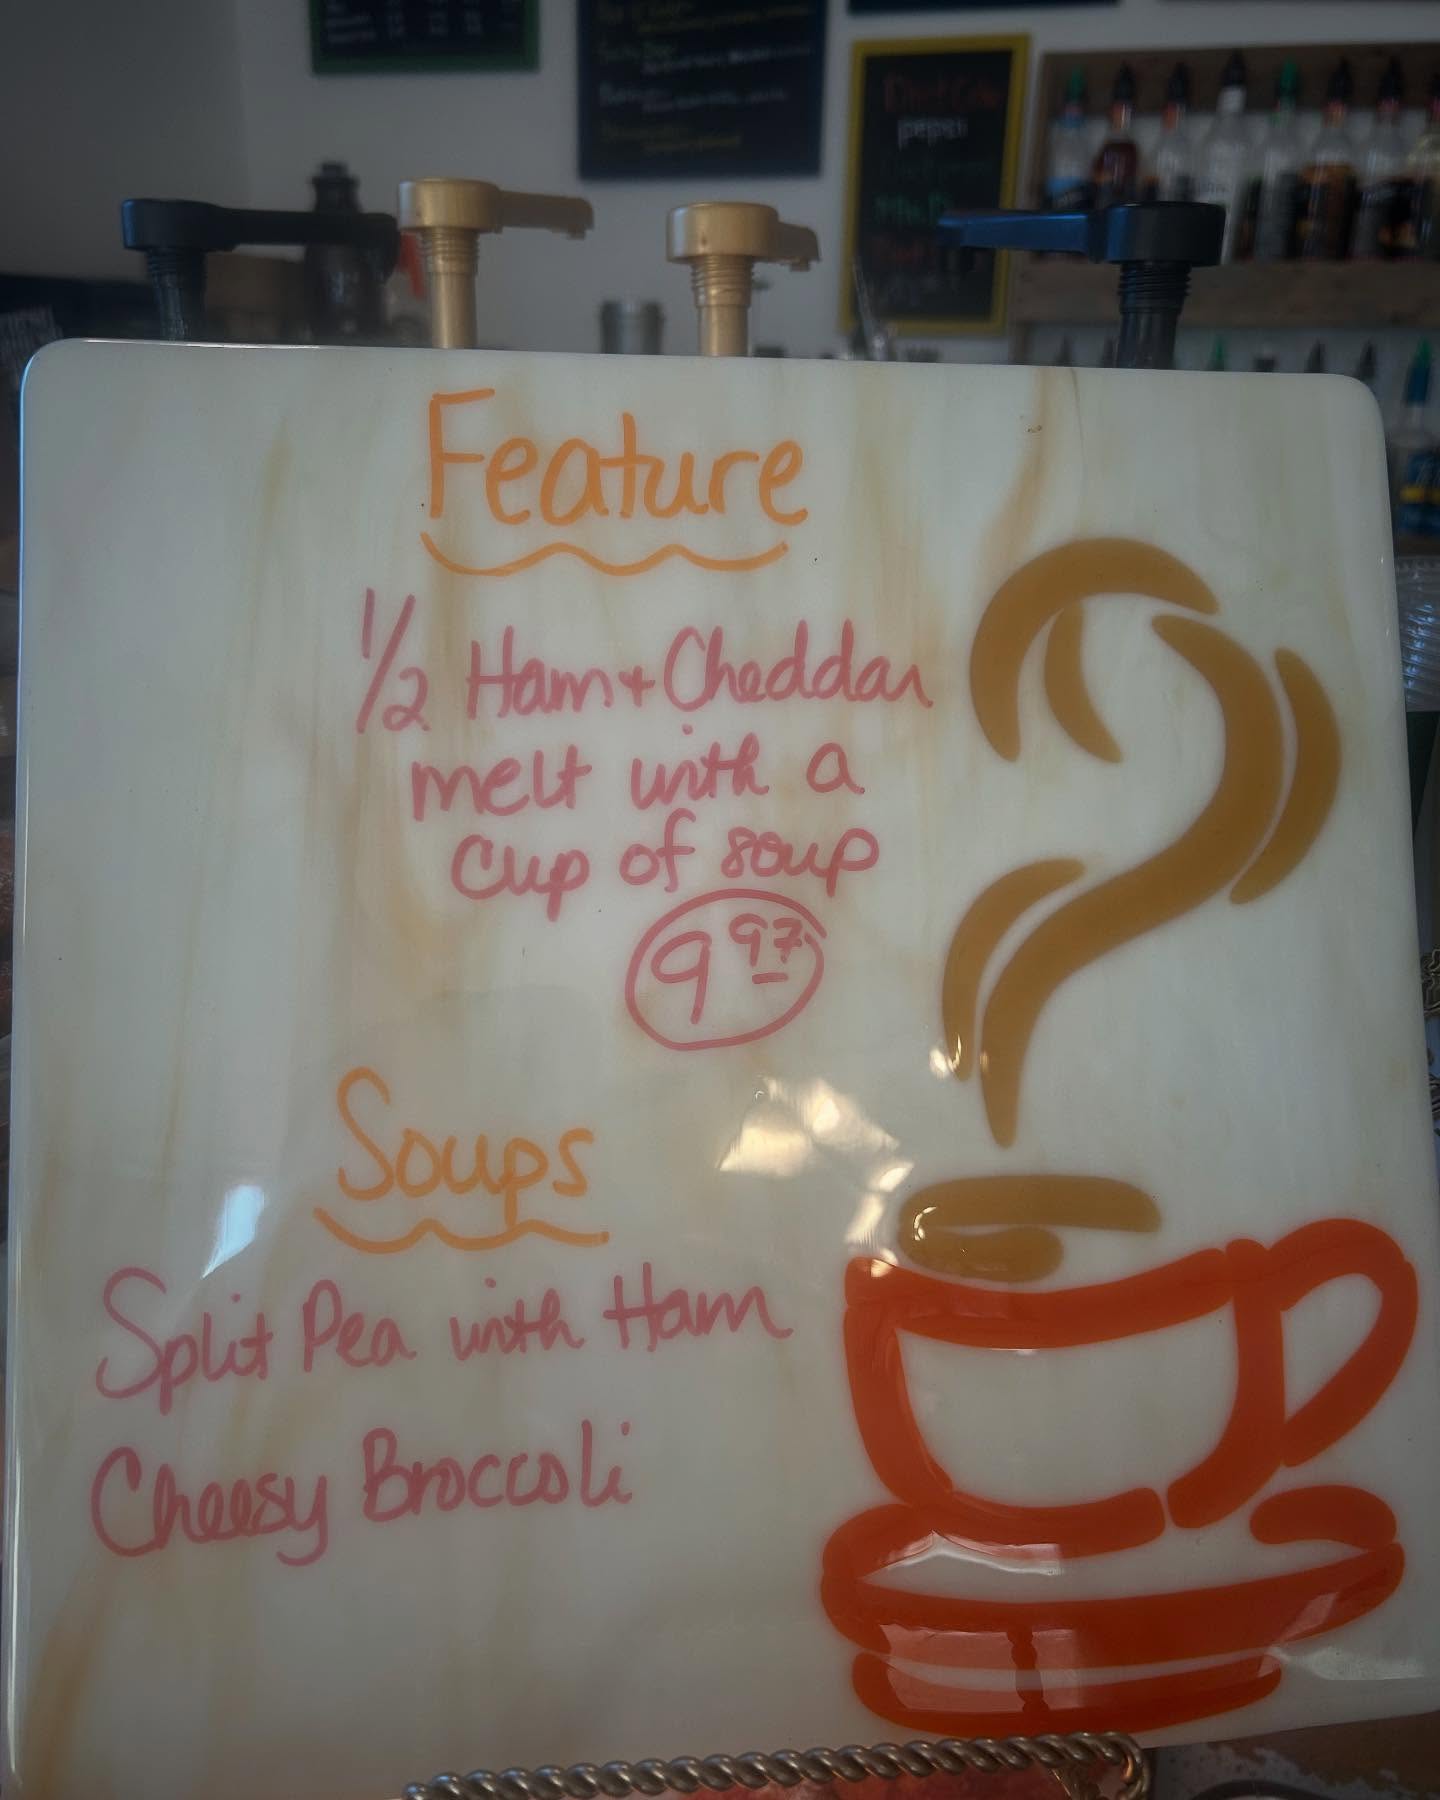 pepsi
Feature
1/2 Ham + Cheddar
melt with a
cup of soup
9 97
Soups
Split Pea with Ham
Cheesy Broccoli